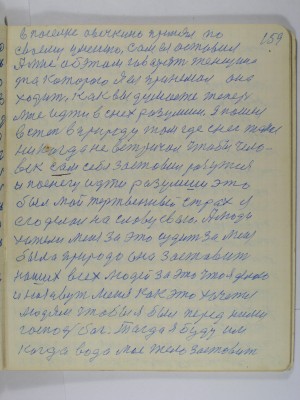 159
в поселке овечкино пришел по
своему умению, сам я оставил
Я мне об этом говорят женщина
для которого я их принемал она
ходит, как вы думаете тепер
мне идти в снех разумши. Я пошел
в степ в природу там где снег
никогда не встречал чтобы чело-
век сам себя заставил разутся
и по снегу идти разумши это
был мой торжественный страх я
сделал на славу свою. А люди
хотели меня за это судит за меня
была природа она заставит
наших всех людей за это что я делаю
и назавут меня как это хочется
людям чтобы я был перед ними
господ бог. Тагда я буду им
когда вода мое тело заставит